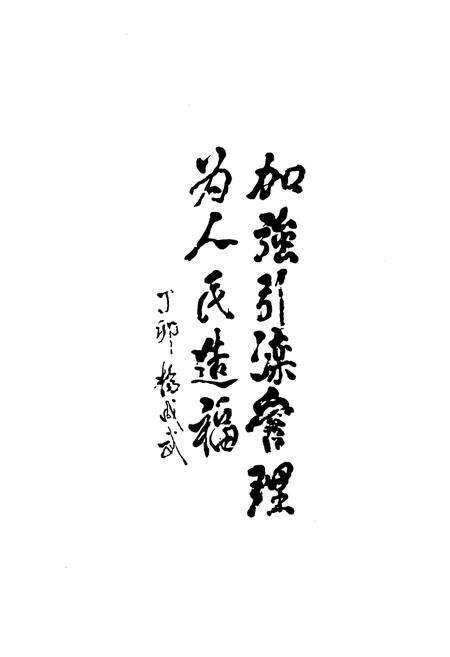 加強引滦管理
为人民造福
丁卯 楊成武